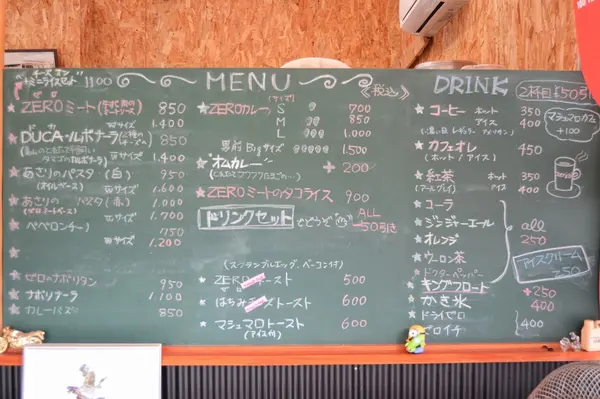 MENU
(税込)
チーズオン
ミニライスセット 1100
ZEROミート 850
Wサイズ 1.400
DUCA・ルボナーラ 850
Wサイズ 1.400
あさりのパスタ(白) 950
(オイルベース) Wサイズ 1.600
あさりのパスタ(赤) 1.000
Wサイズ 1.700
ペペロンチー 750
Wサイズ 1.200
ゼロのナポリタン 950
ナポリナーラ 1.100
カレーパスタ 850
ZEROカレー (サイズ) S 700
M 850
L 1.000
Bigサイズ 1.500
オムカレー +200
ZEROミートのタコライス 900
ドリンクセット ALL
50引き
(スクランブルエッグ、ベーコン付)
ZERO トースト 500
はちみ トースト 600
マシュマロトースト 600
(アイス付)
DRINK
2杯目¥50引
コーヒー ホット 350
アイス 400
マシュマロカフェ
+100
カフェオレ 450
(ホット/アイス)
紅茶 ホット 350
(アールグレイ) アイス 400
コーラ
ジンジャーエール all
オレンジ 250
ウーロン茶
ドクターペッパー
アイスクリーム
250
キングフロート +250
かき氷 400
ドライゼロ
ゼロイチ 400